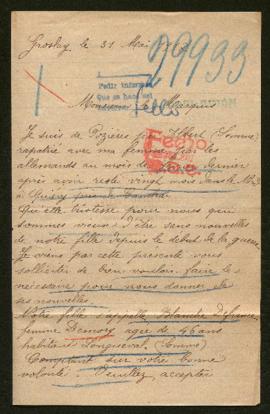 Groslay, le 31 Mai
29933
Pedir informes
Monsieur le Marquis
Je suis de Pozières par Albert (Somme)
rapatrié avec ma femme par les
allemands au mois de dernier
après avoir resté vingt mois dans le
Fecho
Quelle tristesse pour nous qui
sommes vieux d'être sans nouvelles
de notre fille depuis le début de la guerre
Je viens par cette présente vous
solliciter de bien vouloir faire le
nécessaire pour nous donner de
ses nouvelles.
Notre fille s'appelle Blanche
femme agée de 46 ans
habitant Longueval (Somme)
Comptant sur votre bonne
volonté. Veuillez accepter